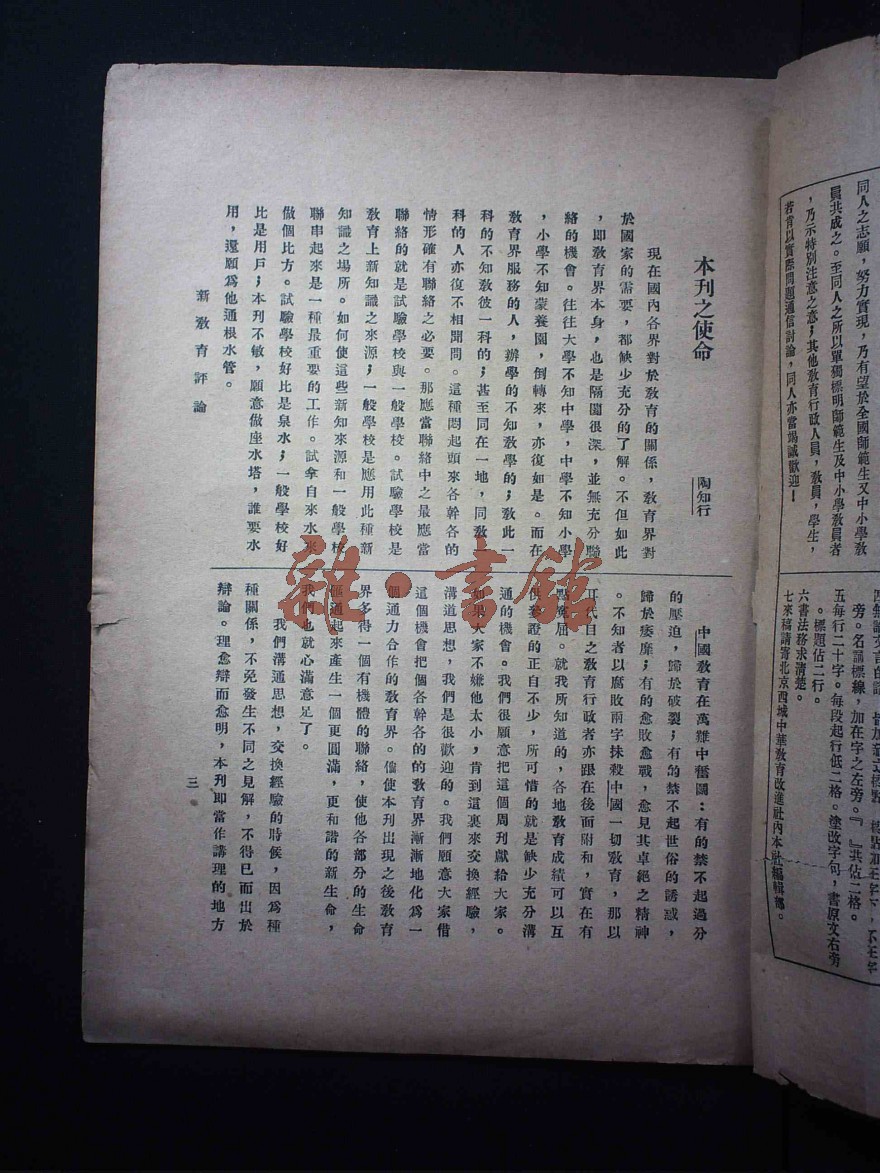 同人之志願，努力實現，乃有望於全國師範生又中小學教
員共成之。至同人之所以單獨標明師範生及中小學教員者
，乃示特別注意之意；其他教育行政人員，教員，學生，
若肯以實際問題通信討論，同人亦當竭誠歡迎！
旁。名詞標線，加在字之左旁。『　』共佔二格。
五每行二十字。每段起行低二格。塗改字句，書原文右旁
。標題佔二行。
六書法務求清楚。
七來稿請寄北京西城中華教育改進社內本社編輯部。
本刊之使命
陶知行
現在國內各界對於教育的關係，教育界對
於國家的需要，都缺少充分的了解。不但如此
，即教育界本身，也是隔閡很深，並無充分聯
絡的機會。往往大學不知中學，中學不知小學
，小學不知蒙養園，倒轉來，亦復如是。而在
教育界服務的人，辦學的不知教學的；教此一
科的不知教彼一科的；甚至同在一地，同教一
科的人亦復不相聞問。這種悶起頭來各幹各的
情形確有聯絡之必要。那應當聯絡中之最應當
聯絡的就是試驗學校與一般學校。試驗學校是
教育上新知識之來源；一般學校是應用此種新
知識之場所。如何使這些新知來源和一般學校
聯串起來是一種最重要的工作。試拿自來水來
做個比方。試驗學校好比是泉水；一般學校好
比是用戶；本刊不敏，願意做座水塔，誰要水
用，還願爲他通根水管。
中國教育在萬難中奮鬭：有的禁不起過分
的壓迫，歸於破裂；有的禁不起世俗的誘惑，
歸於痿靡；有的愈敗愈戰，愈見其卓絕之精神
。不知者以腐敗兩字抹殺中國一切教育，那以
耳代目之教育行政者亦跟在後面附和，實在有
點寃屈。就我所知道的，各地教育成績可以互
供參證的正自不少，所可惜的就是缺少充分溝
通的機會。我們很願意把這個周刊獻給大家。
如果大家不嫌他太小，肯到這裏來交換經驗，
溝通思想，我們是很歡迎的。我們願意大家借
這個機會把個各幹各的的教育界漸漸地化爲一
個通力合作的教育界。倘使本刊出現之後教育
界多得一個有機體的聯絡，使他各部分的生命
匯通起來產生一個更圓滿，更和諧的新生命，
我們也就心滿意足了。
我們溝通思想，交換經驗的時候，因爲種
種關係，不免發生不同之見解，不得已而出於
辯論。理愈辯而愈明，本刊即當作講理的地方
新教育評論
三
雜·書館